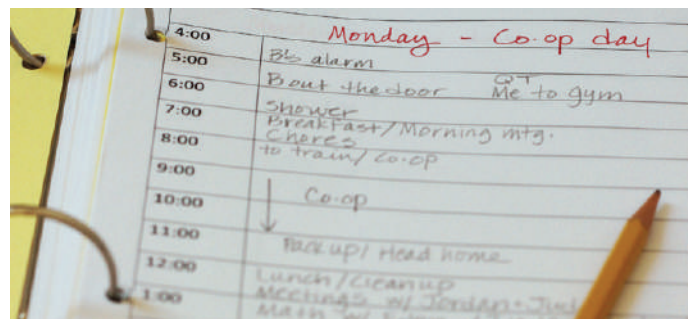 Monday - Co-op day
4:00
5:00 B's alarm
6:00 B out the door QT
Me to gym
7:00 Shower
Breakfast/Morning mtg.
8:00 Chores
to train/co-op
9:00
10:00 Co-op
11:00
Pack up/Head home
12:00
Lunch/cleanup
1:00 Meetings w/ Jordan+
Math w/